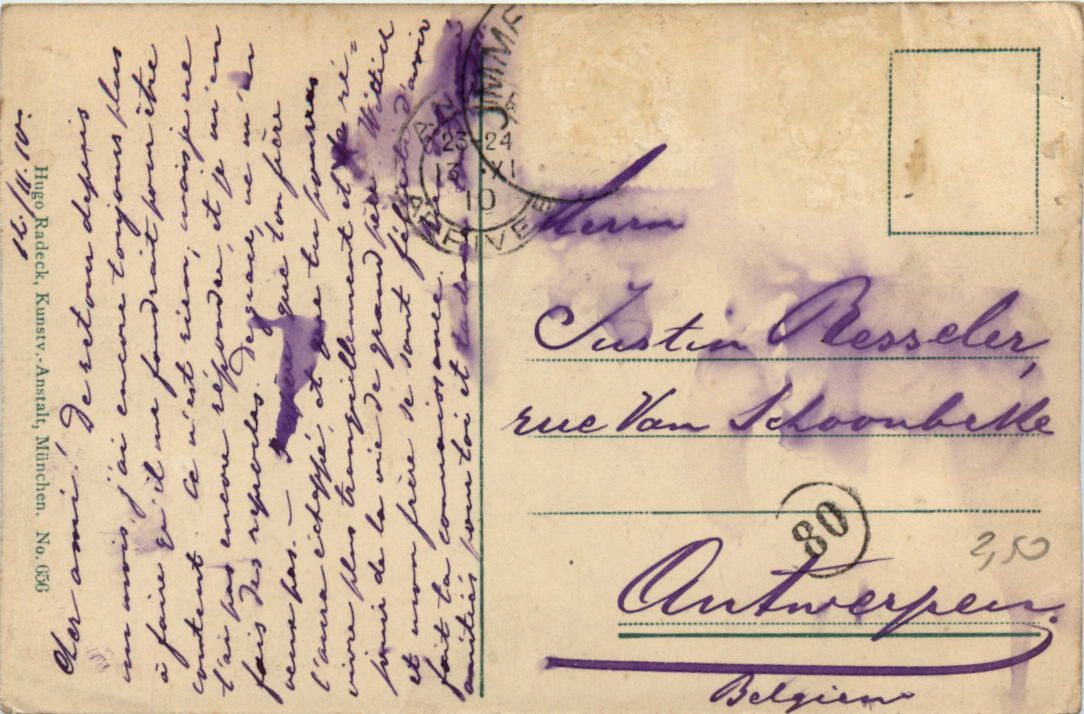 12./11.10.
Cher ami! De retour depuis
un mois j'ai encore toujours plus
à faire qu'il me faudrait pour être
content. Ce n'est rien, mais je ne
t'ai pas encore répondu, et je m'en
fais des reproches. De grâce, ne m'en
veux pas. — que ton père
l'aura échappé, et que tu pourras
vivre plus tranquillement et ré-
jouir de la vie de grand père. Witill
et mon frère se sont félicités d'avoir
fait ta connaissance.
amitiés pour toi et
Hugo Radeck, Kunstv.-Anstalt, München. No. 656
23-24
13 XI
10
ARRIVEE
Herrn
Justin Resseler,
rue Van Schoonbeke
80
2,50
Antwerpen
Belgien